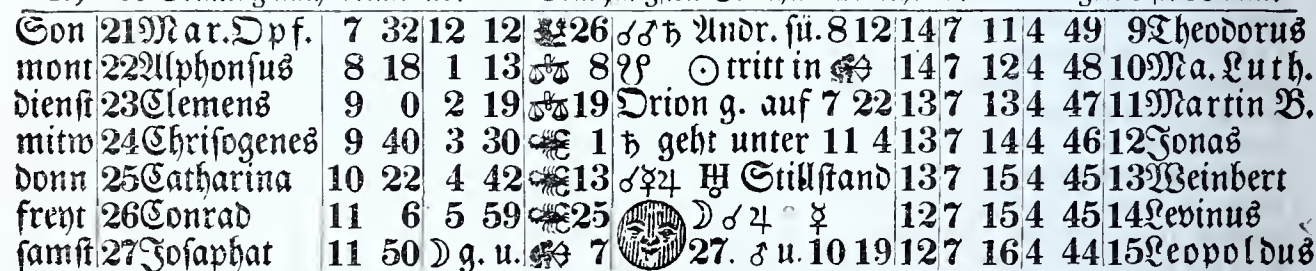 Son 21 Mar. Opf. 7 32 12 12 26 ☌♂♄ Andr. sü. 8 12 14 7 11 4 49 9 Theodorus
mont 22 Alphonsus 8 18 1 13 ♎ 8 ♀☋ ☉ tritt in ♐ 14 7 12 4 48 10 Ma. Luth.
dienst 23 Clemens 9 0 2 19 ♎ 19 Orion g. auf 7 22 13 7 13 4 47 11 Martin B.
mitw 24 Chrisogenes 9 40 3 30 ♏ 1 ♄ geht unter 11 4 13 7 14 4 46 12 Jonas
donn 25 Catharina 10 22 4 42 ♏ 13 ☌☿♃ ♅ Stillstand 13 7 15 4 45 13 Weinbert
freyt 26 Conrad 11 6 5 59 ♏ 25 ☽☌♃ ☿ 12 7 15 4 45 14 Levinus
samst 27 Josaphat 11 50 ☽ g. u. ♐ 7 27. ♂ u. 10 19 12 7 16 4 44 15 Leopoldus